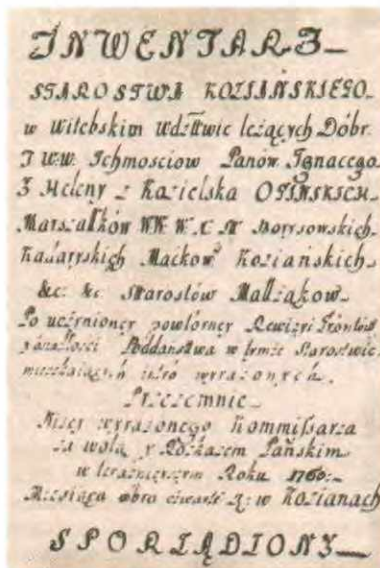 INWENTARZ
STAROSTWA KOZIAŃSKIEGO
w Witebskim Wdztwie leżących Dóbr
J WW. Ichmosciow Panow Ignacego
I Heleny z Kozielska OGIŃSKICH
Marszałków WW. W. X. Borysowskich
Kadaryskich Maćkow Koziańskich
&c: &c Starostów Małżąkow
Po uczynioney powtorney Rewizyi
Poddaństwa w tymże Starostwie
mieszkaiących wyrażonych
Przezemnie
Niżey wyrażonego Kommissarza
za wolą y Rozkazem Pańskim
w teraznieyszym Roku 1760
Miesiąca 8bra w Kozianach
SPORZĄDZONY